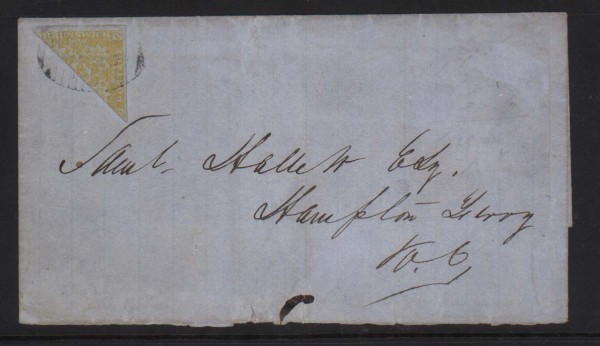 Saml. Hallett Esq.
Hampton Ferry
K. C